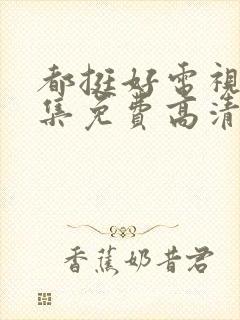 都挺好电視
集免费高清
香蕉奶昔君